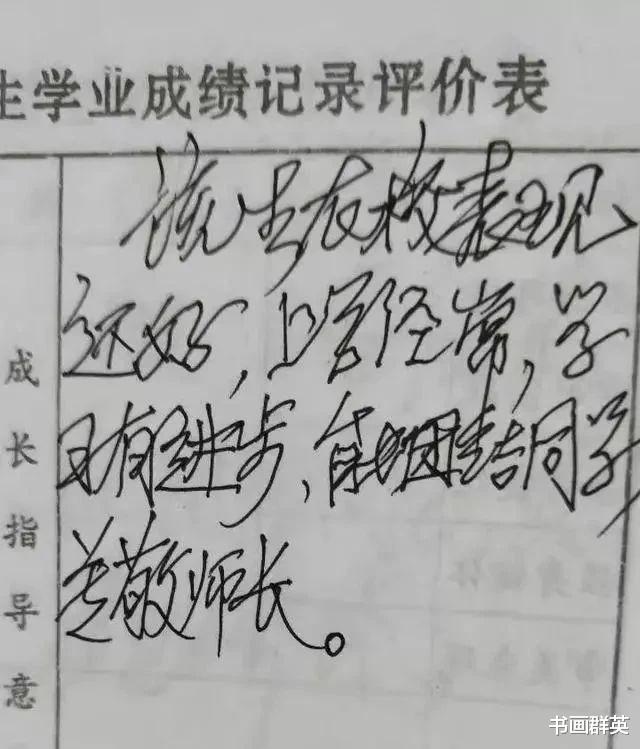 生学业成绩记录评价表
该生在校表现
还好，上学经常，学
习有进步，能团结同学
尊敬师长。
成长指导意
书画群英